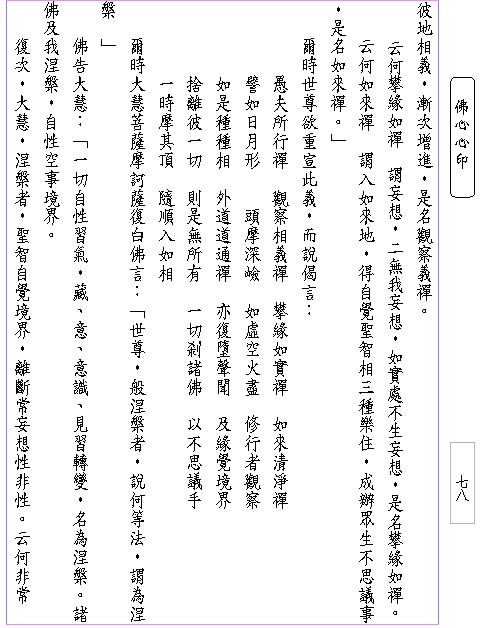 佛心心印
七八
彼地相義，漸次增進，是名觀察義禪。
云何攀緣如禪　謂妄想，二無我妄想，如實處不生妄想，是名攀緣如禪。
云何如來禪　謂入如來地，得自覺聖智相三種樂住，成辦眾生不思議事
，是名如來禪。」
爾時世尊欲重宣此義，而說偈言：
愚夫所行禪　觀察相義禪　攀緣如實禪　如來清淨禪
譬如日月形　頭摩深嶮　如虛空火盡　修行者觀察
如是種種相　外道道通禪　亦復墮聲聞　及緣覺境界
捨離彼一切　則是無所有　一切剎諸佛　以不思議手
一時摩其頂　隨順入如相
爾時大慧菩薩摩訶薩復白佛言：「世尊，般涅槃者，說何等法，謂為涅
槃　」
佛告大慧：「一切自性習氣，藏、意、意識、見習轉變，名為涅槃。諸
佛及我涅槃，自性空事境界。
復次，大慧，涅槃者，聖智自覺境界，離斷常妄想性非性。云何非常